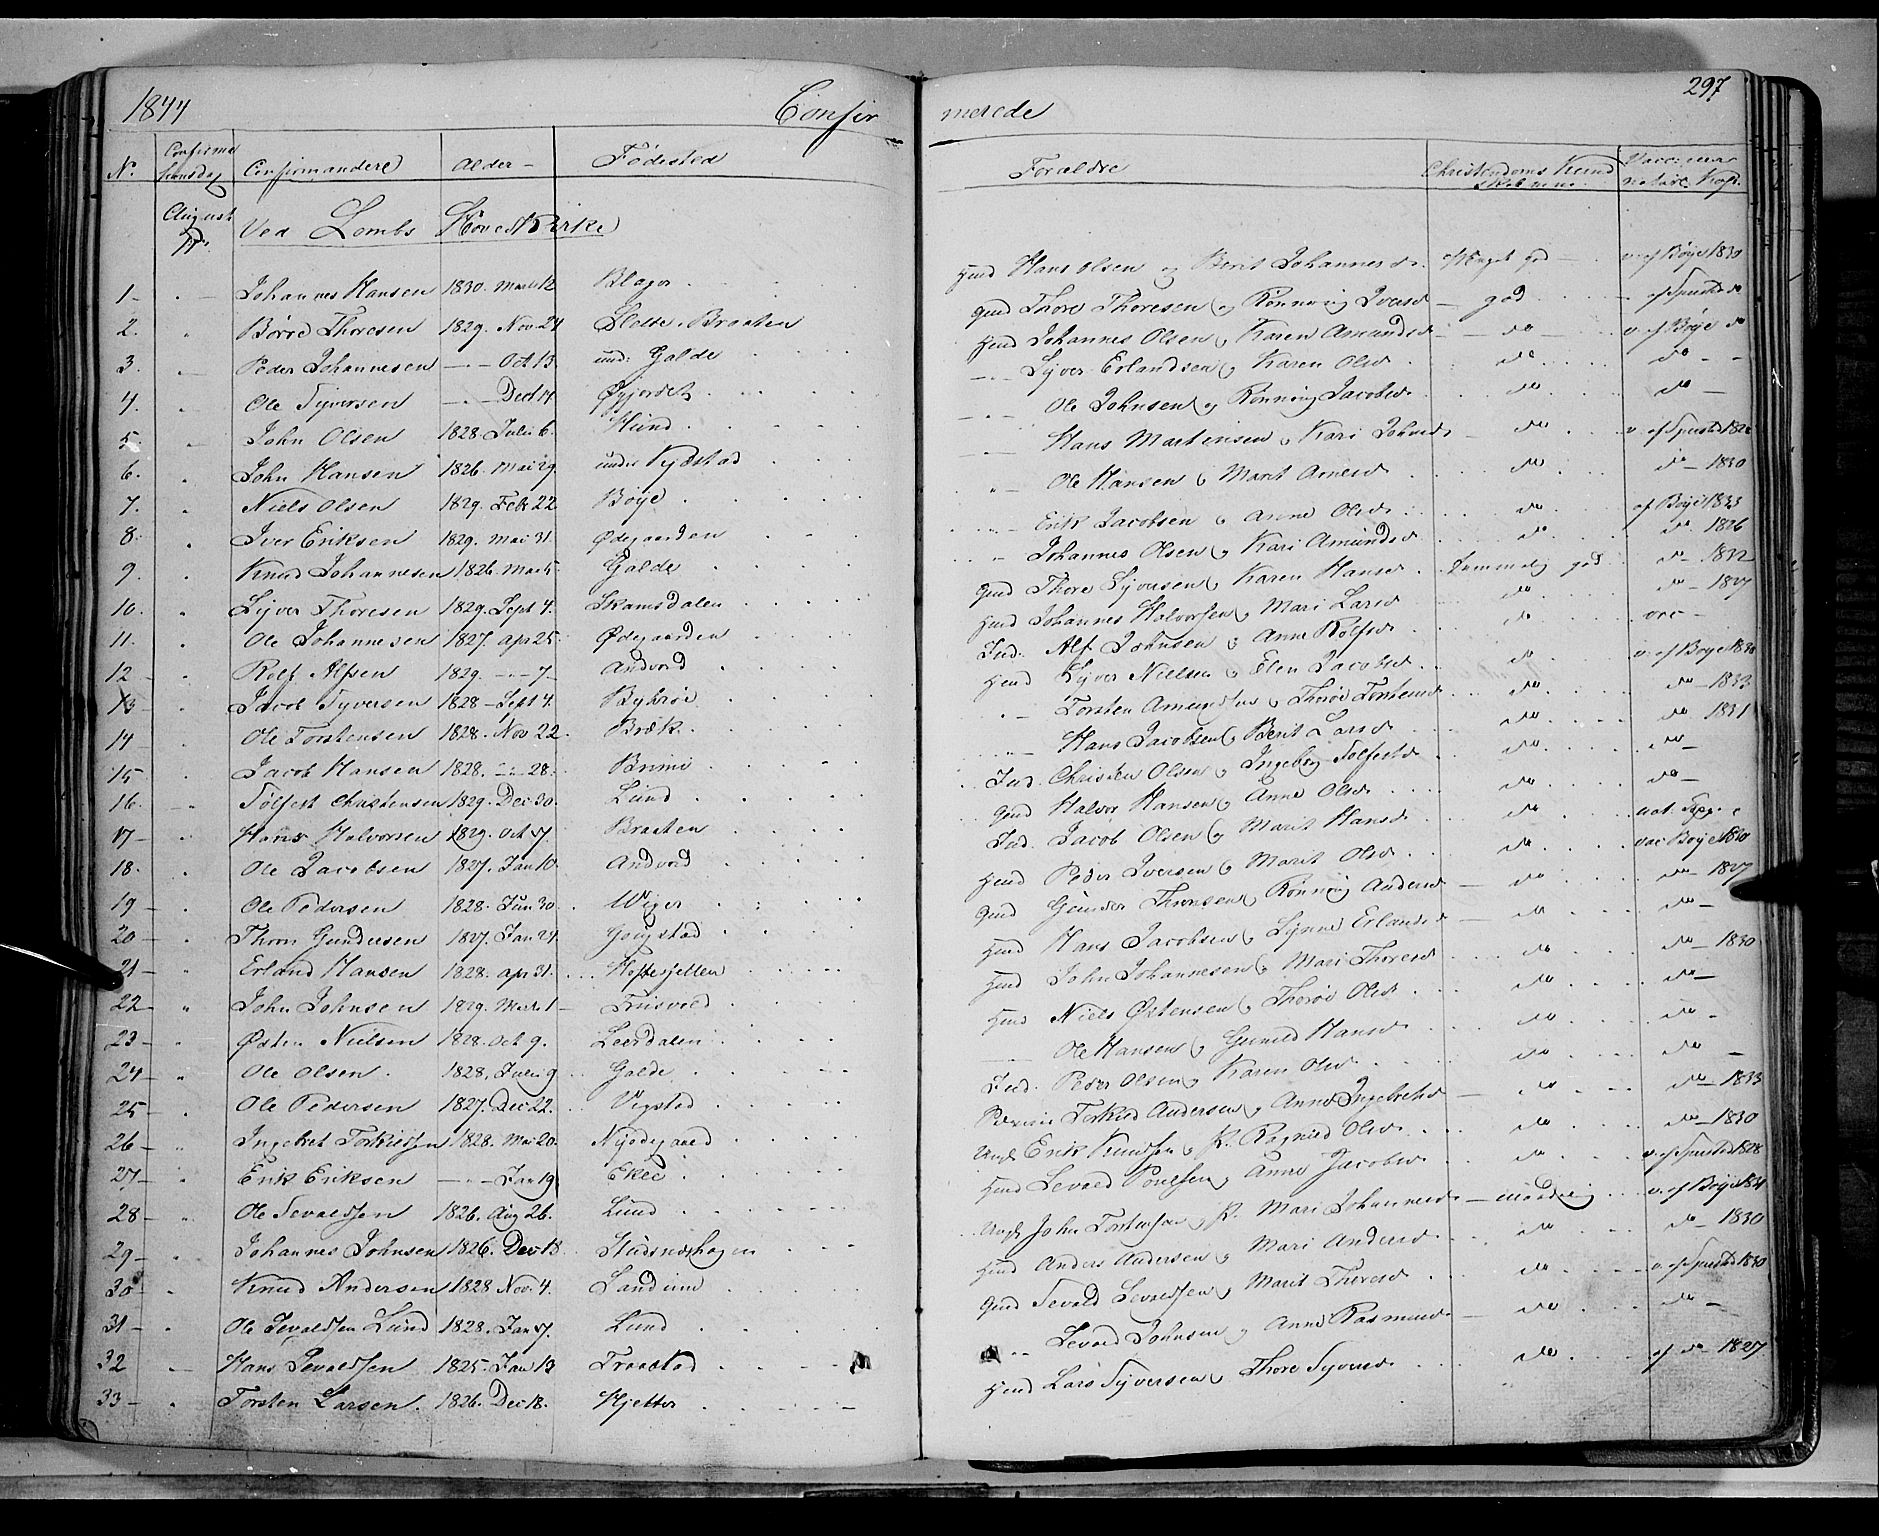 1844 Confir
N. Confirma Confirmandere Alder Fødested
August Ved Lombs HovedKirke
1. Johannes Hansen 1830. Marts 12 Blager
2. Børre Thoresen 1829. Nov 24 Slette Braaten
3. Peder Johannesen — Oct 13. und: Galde
4. Ole Syversen — Dec 14
5. John Olsen 1828. Juli 6. Hund
6. John Hansen 1826. Mai 29. under
7. Niels Olsen 1829. Feb 22 Bøye
8. Iver Eriksen 1829. Mai 31. Ødegaarden
9. Knud Johannesen 1826. Mai 5. Galde
10. Syver Thoresen 1829. Sept 4. Skamsdalen
11. Ole Johannesen 1827. Apr 25. Ødegaarden
12 Rolf Alfsen 1829. — 7 Andvord
13 Jacob Syversen 1828 Sept 4.
14 Ole Torstensen 1828. Nov 22. Bræk
15 Jacob Hansen 1828. — 28. Brimi
16. Tolfest Christensen 1829. Dec 30. Lund
17 Hans Halvorsen 1829. Oct 7. Braaten
18. Ole Jacobsen 1827. Jan 10. Andvord
19 Ole Pedersen 1828. Jun 30.
20 Thron Gundersen 1827. Jan 24. Gougstad
21 Erland Hansen 1828. Apr 31.
22 John Johnsen 1829. Marts 1 Frisvold
23 Østen Nielsen 1828. Oct 9. Leerdalen
24 Ole Olsen. 1828. Juli 9 Galde
25 Ole Pedersen 1827. Dec 22. Vigstad
26 Ingebret Torkildsen 1828. Mai 20. Nyødegaard
27 Erik Eriksen — Jan 19
28 Ole Sevaldsen 1826. Aug 26. Lund
29 Johannes Johnsen 1826. Dec 18.
30 Knud Andersen 1828 Nov. 4. Sandum
31 Ole Sevaldsen Lund 1828. Jan 7. Lund
32 Hans Sevaldsen 1825. Jan 13
33 Torsten Larsen. 1826. Dec 18. Hjeltar
297
merede
Forældre Christendoms Kund
skab
Hmd Hans Olsen og Berit Johannesd. Meget god v. af Bøye 1830
Gmd Thore Thoresen og Rønnoug Iversd god
Hmd Johannes Olsen og Karen Amundsd do v. af Bøye do
Syver Erlandsen og Karen Olsd do do
Ole Johnsen og Rønnoug Jacobsd do do
Hans Martinsen og Kari Johnsd do
Ole Hansen og Marit Arnesd do do 1830
Erik Jacobsen og Anne Olsd do af Bøye 1833
Johannes Olsen og Kari Amundsd do do 1826
Gmd Thore Syversen og Karen Hansd temmelig god do 1832
Hmd Johannes Halvorsen og Mari Larsd do do 1827
Ind. Alf Johnsen og Anne Rolfsd do vac
Hmd Syver Nielsen og Elen Jacobsd do v. af Bøye 1830
Torsten Amundsen og Thorø Torstensd do do 1833
Hans Jacobsen og Berit Larsd do do 1831
Ind. Christen Olsen og Ingeborg Tolfestsd do do
Gmd Halvor Hansen og Anne Olsd do do
Ind. Jacob Olsen og Marit Hansd do
Hmd Peder Iversen og Marit Olsd do vac Bøye 1830
Gmd Gunder Thronsen og Rønnoug Andersd do do 1827
Hmd Hans Jacobsen og Synne Erlandsd do do
Hmd John Johannesen og Mari Thoresd do do 1830
Hmd Niels Østensen og Thorø Olsd do do
Ole Hansen og Gunild Hansd do do
Ind. Peder Olsen og Karen Olsd do do
Torkild Andersen og Anne Ingebretsd do do 1833
Ungk Erik Knudsen og P. Ragnild Olsd do do 1830
Hmd Sevald Poulsen og Anne Jacobsd do
Ungk John Torstensen og P. Mari Johannesd maadelig v. af Bøye 1831
Hmd Anders Andersen og Mari Andersd do do 1830
Gmd Sevald Sevaldsen og Marit Thoresd do
Sevald Johnsen og Anne Rasmusd do do
Hmd Lars Syversen og Thore Syversd do af do 1827